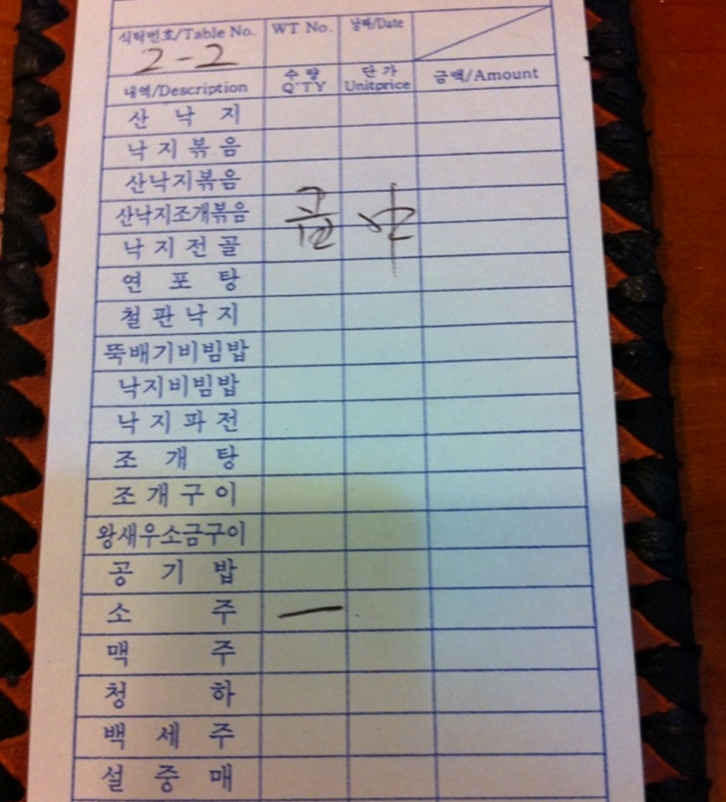 식탁번호/Table No. WT No. 날짜/Date
2-2
내역/Description 수량 Q'TY 단가 Unitprice 금액/Amount
산 낙 지
낙 지 볶 음
산낙지볶음
산낙지조개볶음
낙 지 전 골
연 포 탕
철 판 낙 지
뚝배기비빔밥
낙지비빔밥
낙 지 파 전
조 개 탕
조 개 구 이
왕새우소금구이
공 기 밥
소 주 一
맥 주
청 하
백 세 주
설 중 매